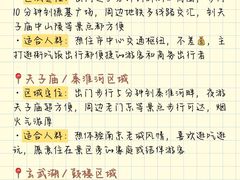 10分钟到德基广场,周边地铁多线路交汇,到夫
子庙中山陵等景点都方便
·适合人群:想住市中心交通枢纽,不差💰,主
打逛街购物出行都便捷的游客和商务出行者
📍夫子庙/秦淮河区域
·区域定位:出门步行5分钟到秦淮河畔,夜游
夫子庙超方便,周边老门东等景点步行可达,烟
火气浓厚
·适合人群:想体验南京老城风情,喜欢逛吃逛
玩,愿意住在景区旁的家庭或结伴游客
📍玄武湖/鼓楼区域